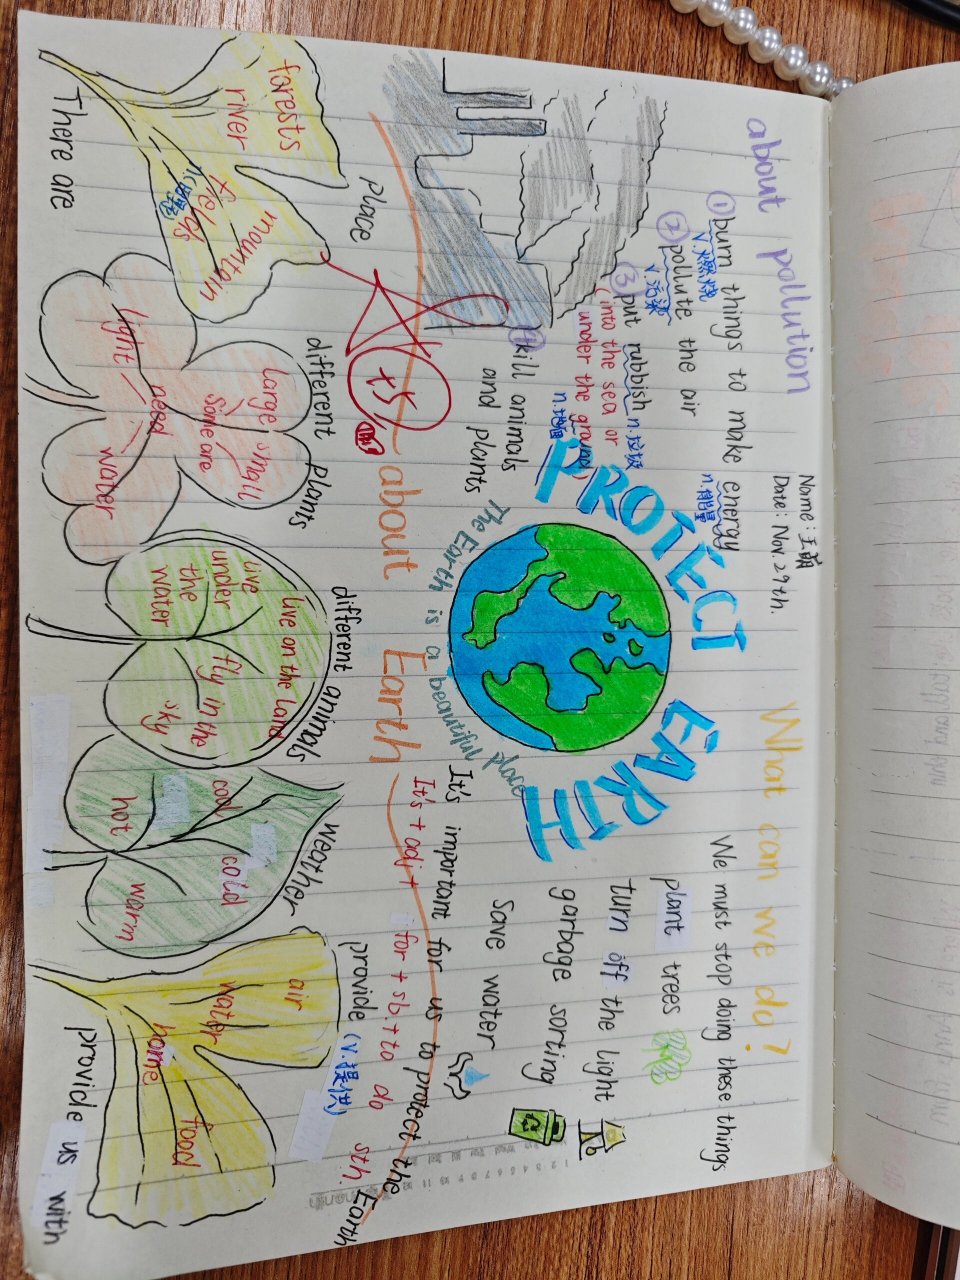 Name: 王萌
Date: Nov. 29th.
about pollution
① burn things to make energy
v.燃烧
n.能量
② pollute the air
v.污染
③ put rubbish n.垃圾
(into the sea or
under the ground)
④ kill animals
and plants
PROTECT EARTH
The Earth is a beautiful place
What can we do?
We must stop doing these things
plant trees
turn off the light
garbage sorting
save water
It's important for us to protect the Earth
It's + adj + for + sb + to do sth.
about Earth
+5
place
forests
river
mountain
fields
There are
different plants
large small
Some are
light
need
water
different animals
live on the land
live under the water
fly in the sky
weather
cool
cold
hot
warm
provide (v.提供)
air
water
home
food
provide us with